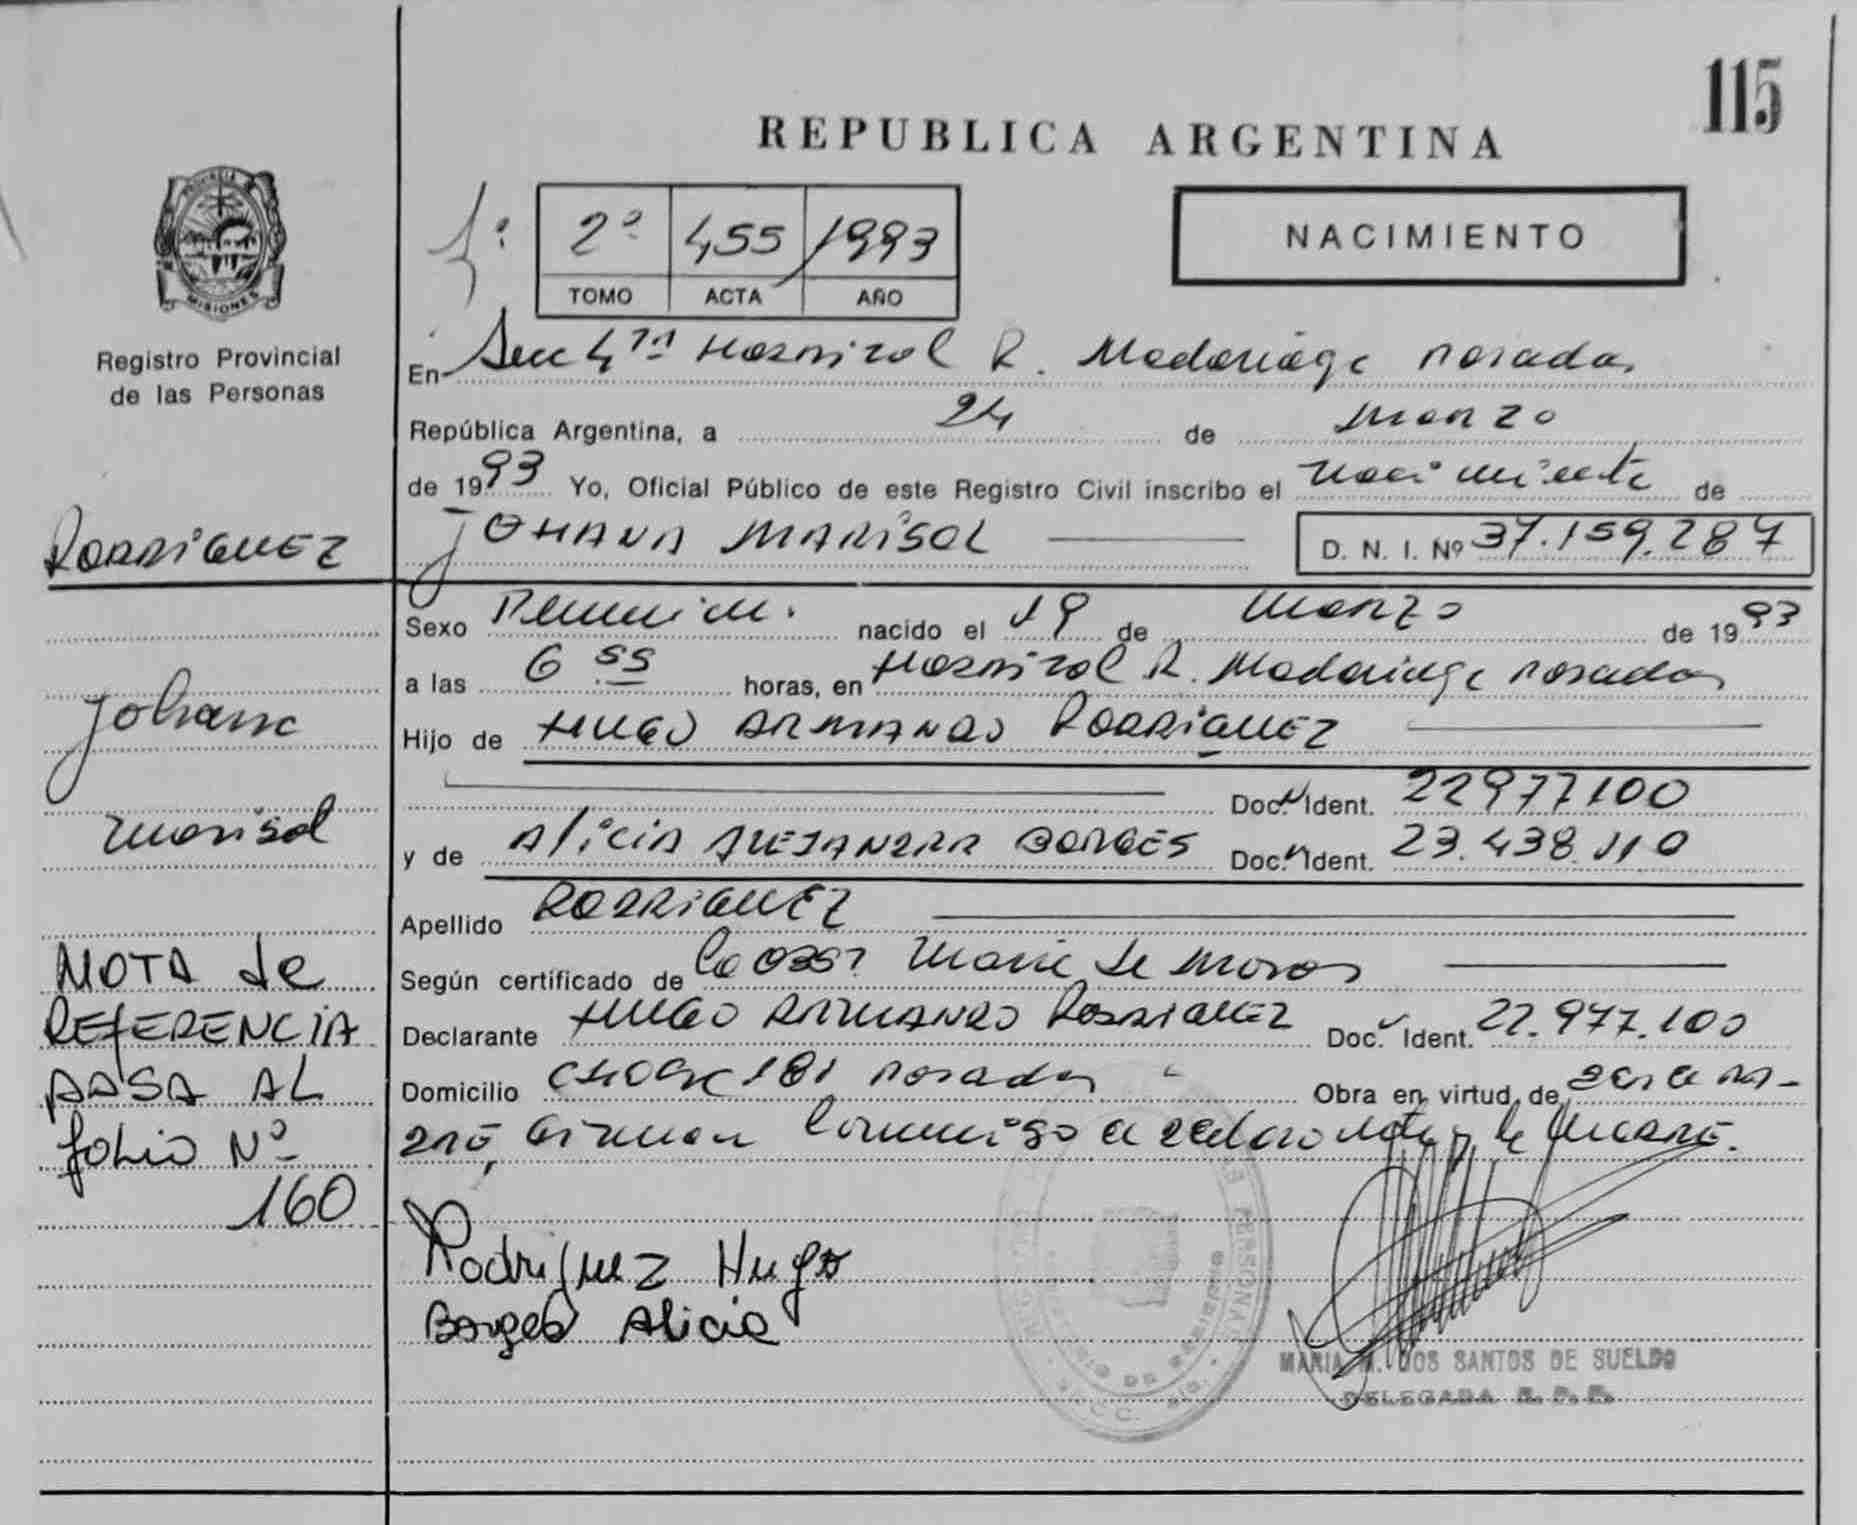 115
REPUBLICA ARGENTINA
PROVINCIA
MISIONES
Registro Provincial
de las Personas
1º
2º 455 1993
TOMO ACTA AÑO
NACIMIENTO
En Secc 4ta Hospital R. Madariaga Posadas
República Argentina, a 24 de Marzo
de 1993 Yo, Oficial Público de este Registro Civil inscribo el nacimiento de
JOHANA MARISOL D. N. I. Nº 37.159.287
RODRIGUEZ
Johana
Marisol
NOTA de
REFERENCIA
PASA AL
foLio Nº
160
Sexo Femenin. nacido el 19 de Marzo de 1993
a las 6 55 horas, en Hospital R. Madariaga Posadas
Hijo de HUGO ARMANDO RODRIGUEZ
Doc. Ident. 22977100
y de Alicia ALEJANDRA BORGES Doc. Ident. 23.438.110
Apellido RODRIGUEZ
Según certificado de de
Declarante HUGO ARMANDO RODRIGUEZ Doc. Ident. 22.977.100
Domicilio 181 Posadas Obra en virtud de
Firman Conmigo el y la
Rodriguez Hugo
Borges Alicia
PERSONAS
MARIA M. DOS SANTOS DE SUELDO
DELEGADA R. P. P.